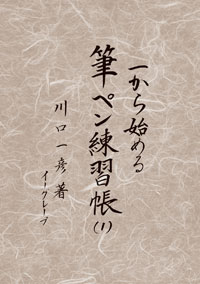 一から始める
筆ペン練習帳
(1)
川口一彦著
イーグレープ